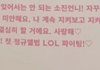 있어서는 안 되는 소진언니! 자주
미안해요. 나 계속 지켜보고 지켜
결심히 할 거에요. 사랑해♡
! 첫 정규앨범 LOL 파이팅!